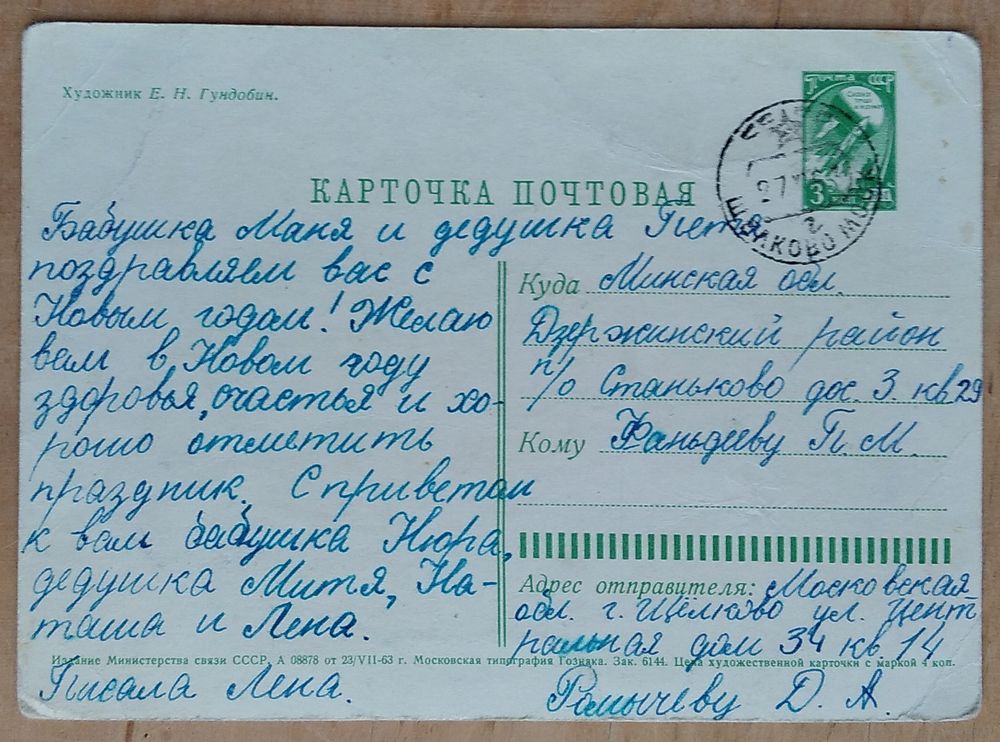 Художник Е. Н. Гундобин.
Почта СССР
3
ЩЕЛКОВО МОСК
КАРТОЧКА ПОЧТОВАЯ
Бабушка Маня и дедушка Петя
поздравляем вас с
Новым годом! Желаю
вам в Новом году
здоровья, счастья и хо-
рошо отметить
праздник. С приветом
к вам бабушка Нюра,
дедушка Митя, На-
таша и Лена.
Писала Лена.
Куда Минская обл.
Дзержинский район
п/о Станьково дос. 3 кв 29
Кому Фаньдееву П. М.
Адрес отправителя: Московская
обл. г. Щёлково ул. Цент
ральная дом 34 кв. 14
Рамычеву Д. А.
Издание Министерства связи СССР, А 08878 от 23/VII-63 г. Московская типография Гознака. Зак. 6144. Цена художественной карточки с маркой 4 коп.